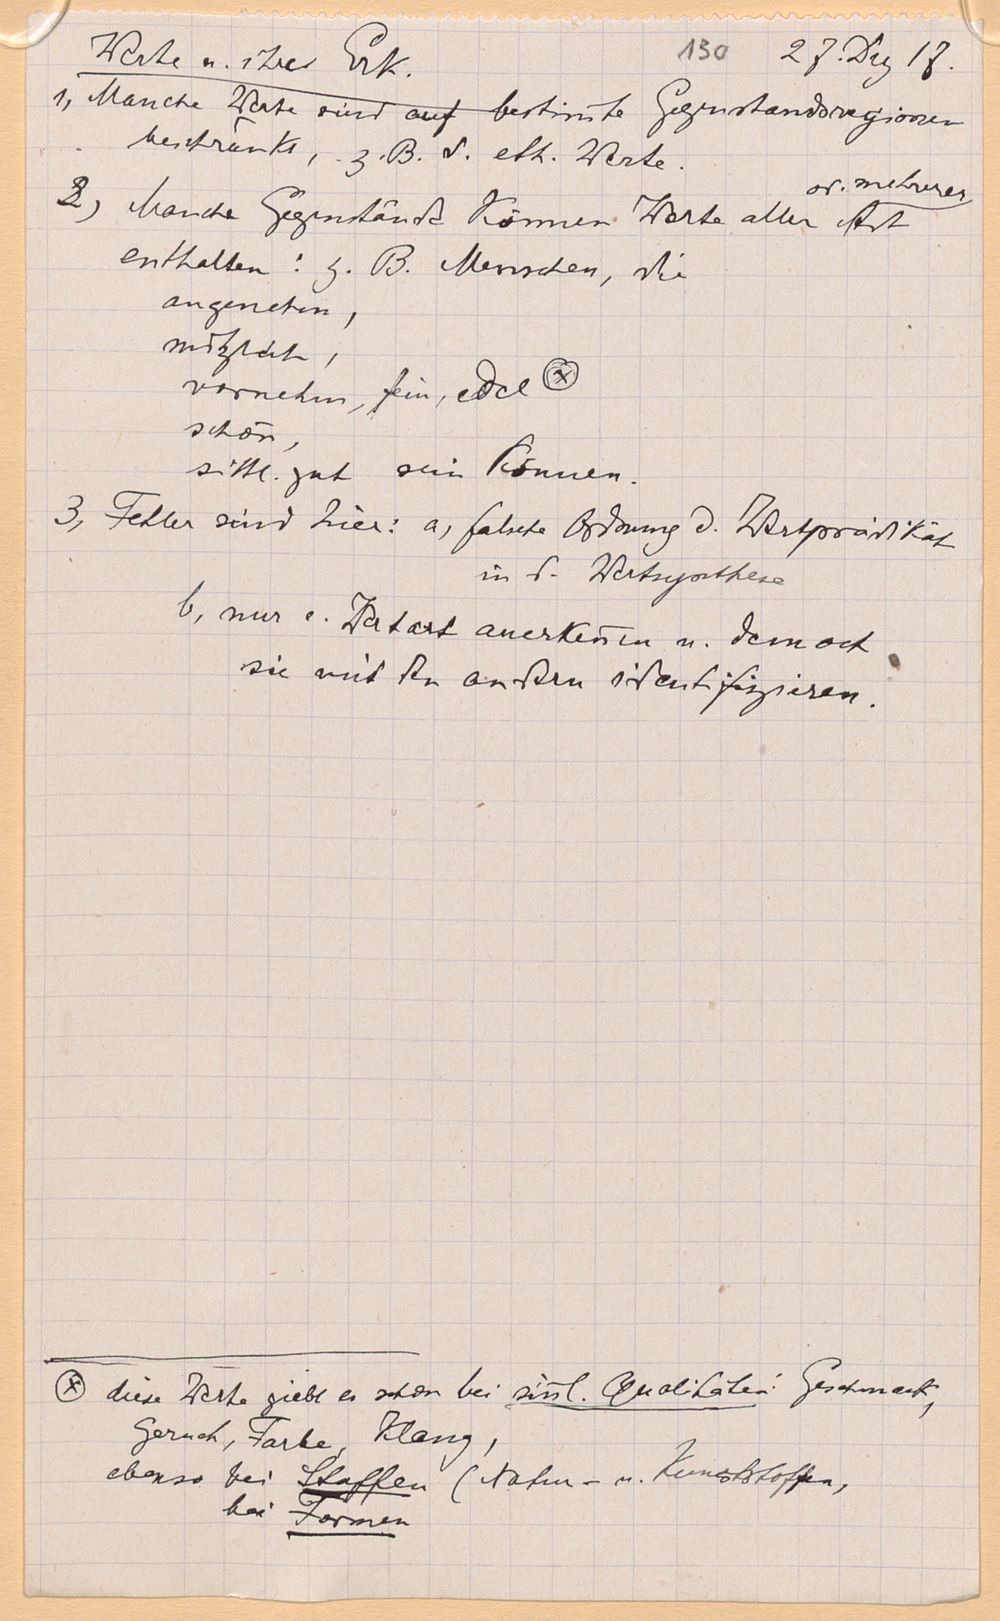 Werte u. ihre Erk. 130 27. Dez 17.
1, Manche Werte sind auf bestimte Gegenstandsregionen
beschränkt, z. B. d. eth. Werte.
od. mehrerer
2, Manche Gegenstände können Werte aller Art
enthalten: z. B. Menschen, die
angenehm,
nützlich,
vornehm, fein, edel ⓧ
schön,
sittl. gut sein können.
3, Fehler sind hier: a, falsche Ordnung d. Wertprädikat
in d. Wertsynthese
b, nur e. Wertart anerkennen u. dennoch
sie mit den andern identifizieren.
ⓧ diese Werte giebt es schon bei sinnl. Qualitäten: Geschmack,
Geruch, Farbe, Klang,
ebenso bei Stoffen (Natur- u. Kunststoffen,
bei Formen